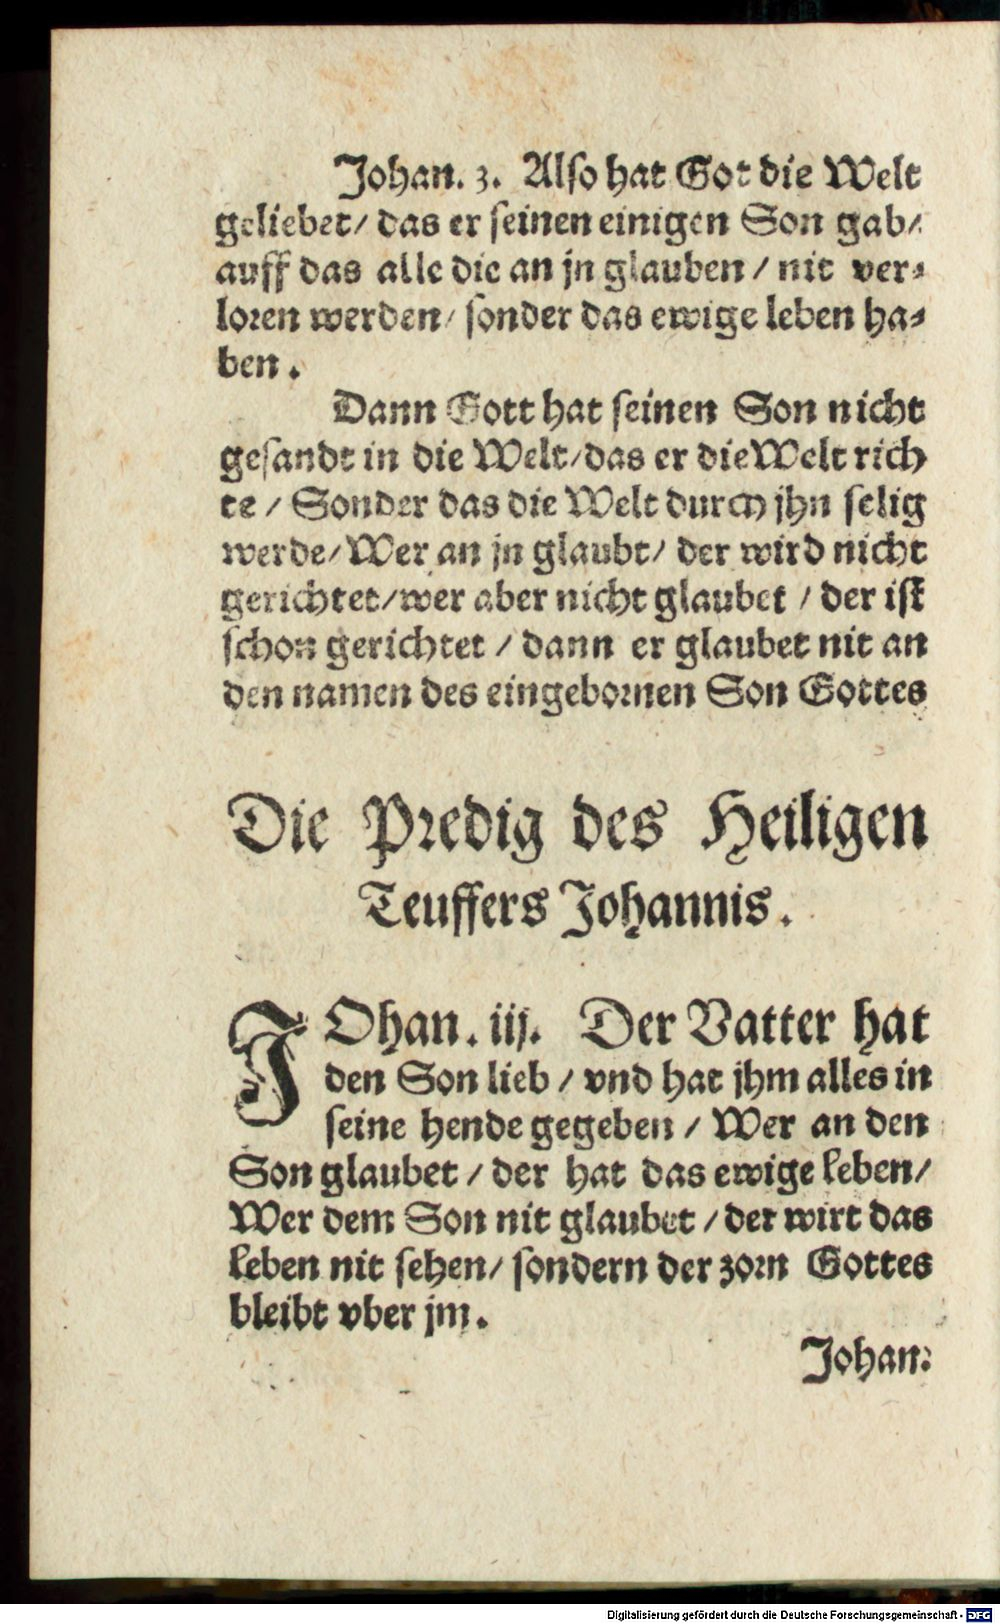 Johan. 3. Also hat Got die Welt
geliebet/ das er seinen einigen Son gab/
auff das alle die an jn glauben / nit ver-
loren werden/ sonder das ewige leben ha-
ben.
Dann Gott hat seinen Son nicht
gesandt in die Welt/das er die Welt rich
te / Sonder das die Welt durch jhn selig
werde/ Wer an jn glaubt/ der wird nicht
gerichtet/wer aber nicht glaubet / der ist
schon gerichtet / dann er glaubet nit an
den namen des eingebornen Son Gottes
Die Predig des Heiligen
Teuffers Johannis.
JOhan. iij. Der Vatter hat
den Son lieb / vnd hat jhm alles in
seine hende gegeben / Wer an den
Son glaubet / der hat das ewige leben/
Wer dem Son nit glaubet / der wirt das
leben nit sehen/ sondern der zorn Gottes
bleibt vber jm.
Johan:
Digitalisierung gefördert durch die Deutsche Forschungsgemeinschaft - DFG